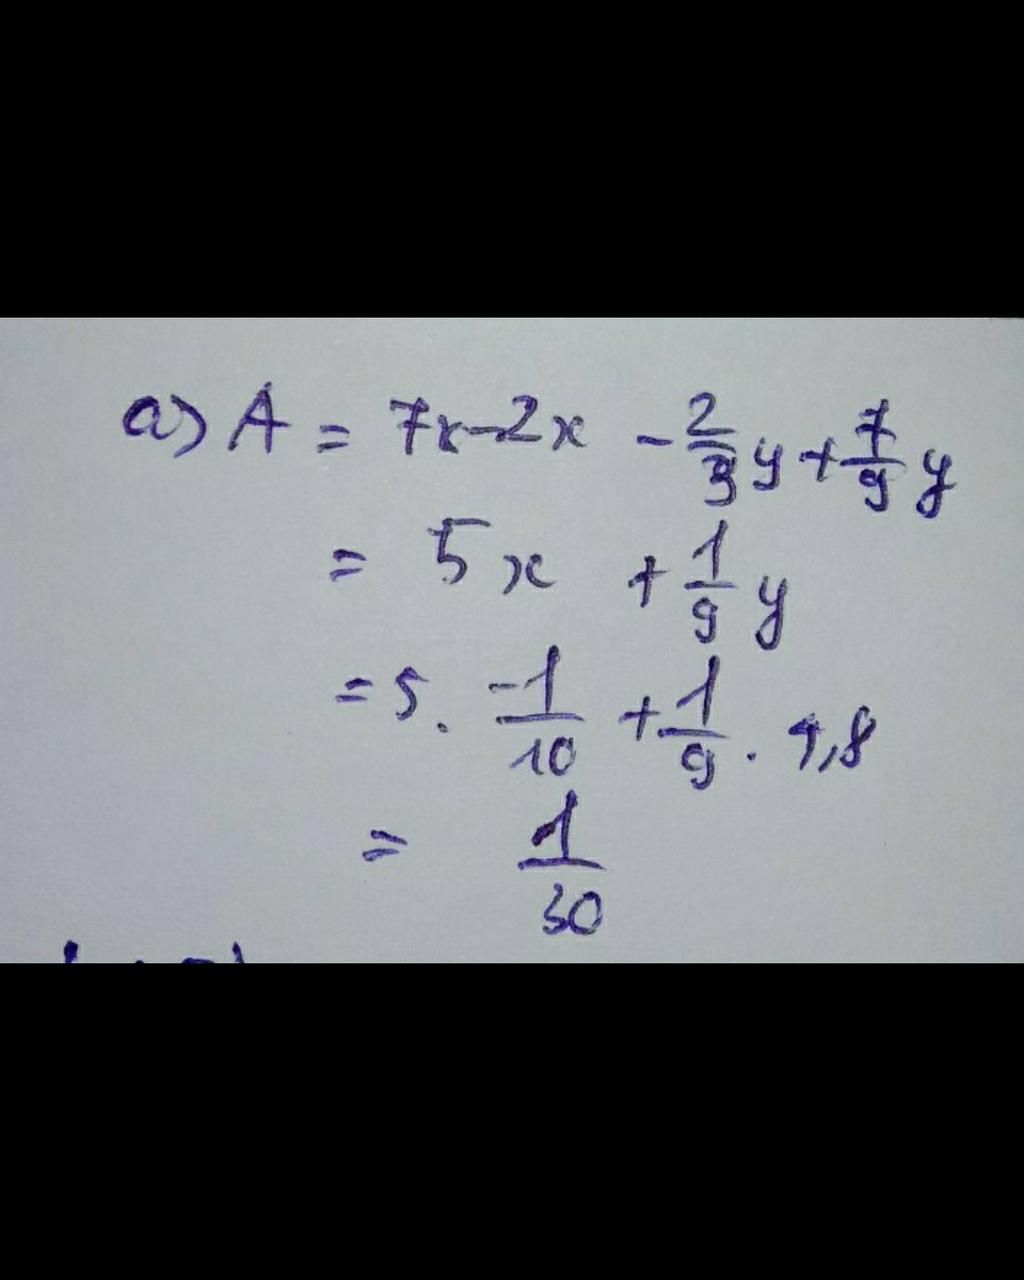 a) A = 7x - 2x - 2/3 y + 7/9 y
= 5x + 1/9 y
= 5. -1/10 + 1/9 . 4,8
= 1/30